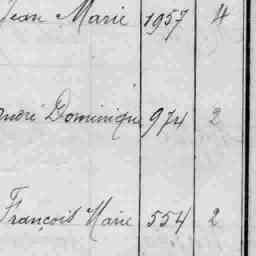 Jean Marie 1957 4
André Dominique 974 2
François Marie 554 2